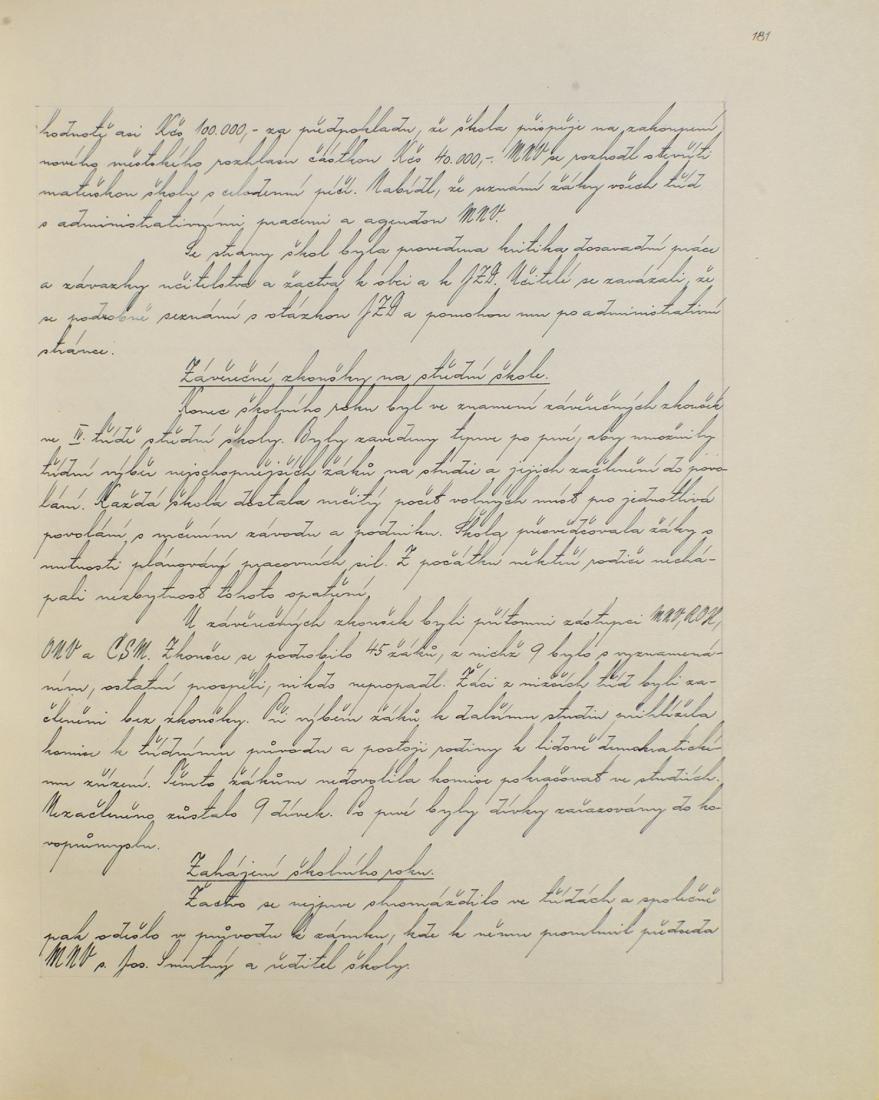 181
hodnotě asi Kčs 100.000,- za předpokladu, že škola přispěje na zakoupení
nového městského rozhlasu částkou Kčs 40.000,-. MNV se rozhodl otevříti
mateřskou školu s celodenní péčí. Nabídl, že seznámí žáky všech tříd
s administrativními pracemi a agendou MNV.
Se strany škol byla provedena kritika dosavadní práce
a závazky učitelstva a žactva k obci a k JZD. Učitelé se zavázali, že
se podrobně seznámí s otázkou JZD a pomohou mu po administrativní
stránce.
Závěrečné zkoušky na střední škole.
Konec školního roku byl ve znamení závěrečných zkoušek
ve IV. třídě střední školy. Byly zavedeny teprve po prvé, aby umožnily
třídní výběr nejschopnějších žáků na studie a jejich začlenění do povo-
lání. Každá škola dostala určitý počet volných míst pro jednotlivá
povolání s určením závodu a podniku. Škola přesvědčovala žáky o
nutnosti plánování pracovních sil. Z počátku někteří rodiče nechá-
pali nezbytnost tohoto opatření.
U závěrečných zkoušek byli přítomni zástupci MNV, ROH,
ONV a ČSM. Zkoušce se podrobilo 45 žáků, z nichž 9 bylo s vyznamená-
ním, ostatní prospěli, nikdo nepropadl. Žáci z nižších tříd byli za-
členěni bez zkoušky. Při výběru žáků k dalšímu studiu přihlížela
komise k třídnímu původu a postoji rodiny k lidově demokratické-
mu zřízení. Těmto žákům nedovolila komise pokračovat ve studiích.
Nezačleněno zůstalo 9 dívek. Po prvé byly dívky zařazovány do ko-
voprůmyslu.
Zahájení školního roku.
Žactvo se nejprve shromáždilo ve třídách a společně
pak odešlo v průvodu k zámku, kde k němu promluvil předseda
MNV s. Jos. Smutný a ředitel školy.